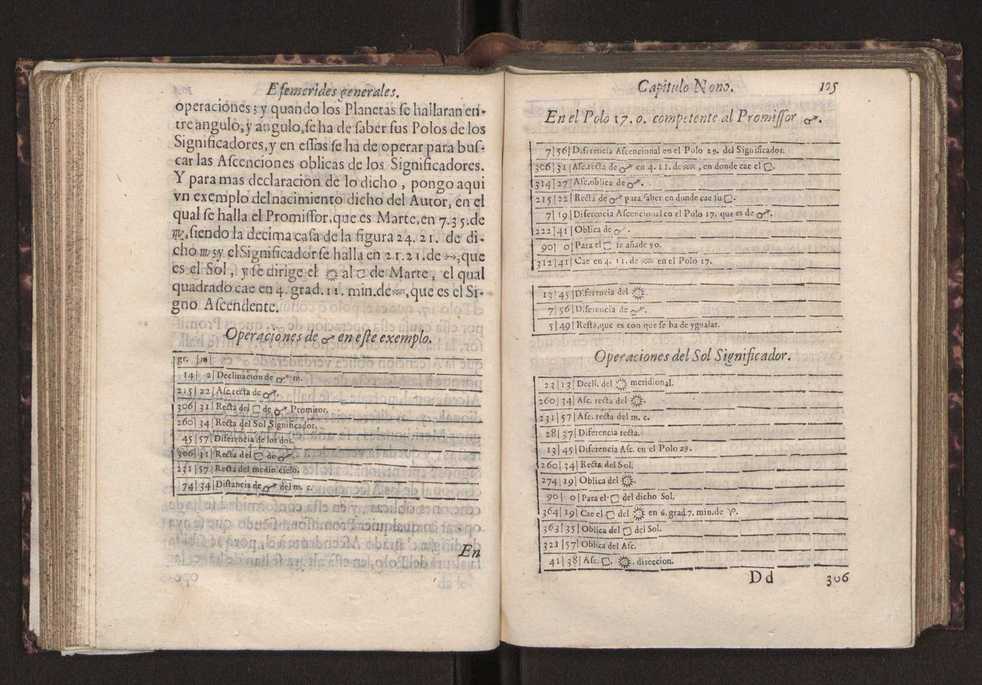 Efemerides generales.
operaciones; y quando los Planetas se hallaran en-
tre angulo, y angulo, se ha de saber sus Polos de los
Significadores, y en essos se ha de operar para bus-
car las Ascenciones oblicas de los Significadores.
Y para mas declaracion de lo dicho, pongo aqui
vn exemplo del nacimiento dicho del Autor, en el
qual se halla el Promissor, que es Marte, en 7.35. de
♏, siendo la decima casa de la figura 24. 21. de di-
cho ♏ y el Significador se halla en 21.21. de ♐, que
es el Sol, y se dirige el ☼ al □ de Marte, el qual
quadrado cae en 4. grad. 11. min. de ♒, que es el Si-
gno Ascendente.
Operaciones de ♂ en este exemplo.
gr. | m |
14 | 2 | Declinacion de ♂ m.
215 | 22 | Asc. recta de ♂.
306 | 31 | Recta del □ de ♂ Promitor.
260 | 34 | Recta del Sol Significador.
45 | 57 | Diferencia de los dos.
306 | 31 | Recta del □ de ♂
231 | 57 | Recta del medio cielo.
74 | 34 | Distancia de ♂ del m. c.
En
Capitulo Nono. 105
En el Polo 17. 0. competente al Promissor ♂.
7 | 56 | Diferencia Ascencional en el Polo 29. del Significador.
306 | 31 | Asc. recta de ♂ en 4. 11. de ♒, en donde cae el □.
314 | 27 | Asc. oblica de ♂.
215 | 22 | Recta de ♂ para saber en donde cae su □.
7 | 19 | Diferencia Ascencional en el Polo 17. que es de ♂.
222 | 41 | Oblica de ♂.
90 | 0 | Para el □ se añade 90.
312 | 41 | Cae en 4. 11. de ♒ en el Polo 17.
13 | 45 | Diferencia del ☼.
7 | 56 | Diferencia de ♂.
5 | 49 | Resta, que es con que se ha de ygualar.
Operaciones del Sol Significador.
23 | 13 | Decli. del ☼ meridional.
260 | 34 | Asc. recta del ☼.
231 | 57 | Asc. recta del m. c.
28 | 37 | Diferencia recta.
13 | 45 | Diferencia Asc. en el Polo 29.
260 | 34 | Recta del Sol.
274 | 19 | Oblica del ☼.
90 | 0 | Para el □ del dicho Sol.
364 | 19 | Cae el □ del ☼ en 6. grad. 7. min. de ♈.
363 | 35 | Oblica del □ del Sol.
321 | 57 | Oblica del Asc.
41 | 38 | Asc. □. ☼. direccion.
Dd 306